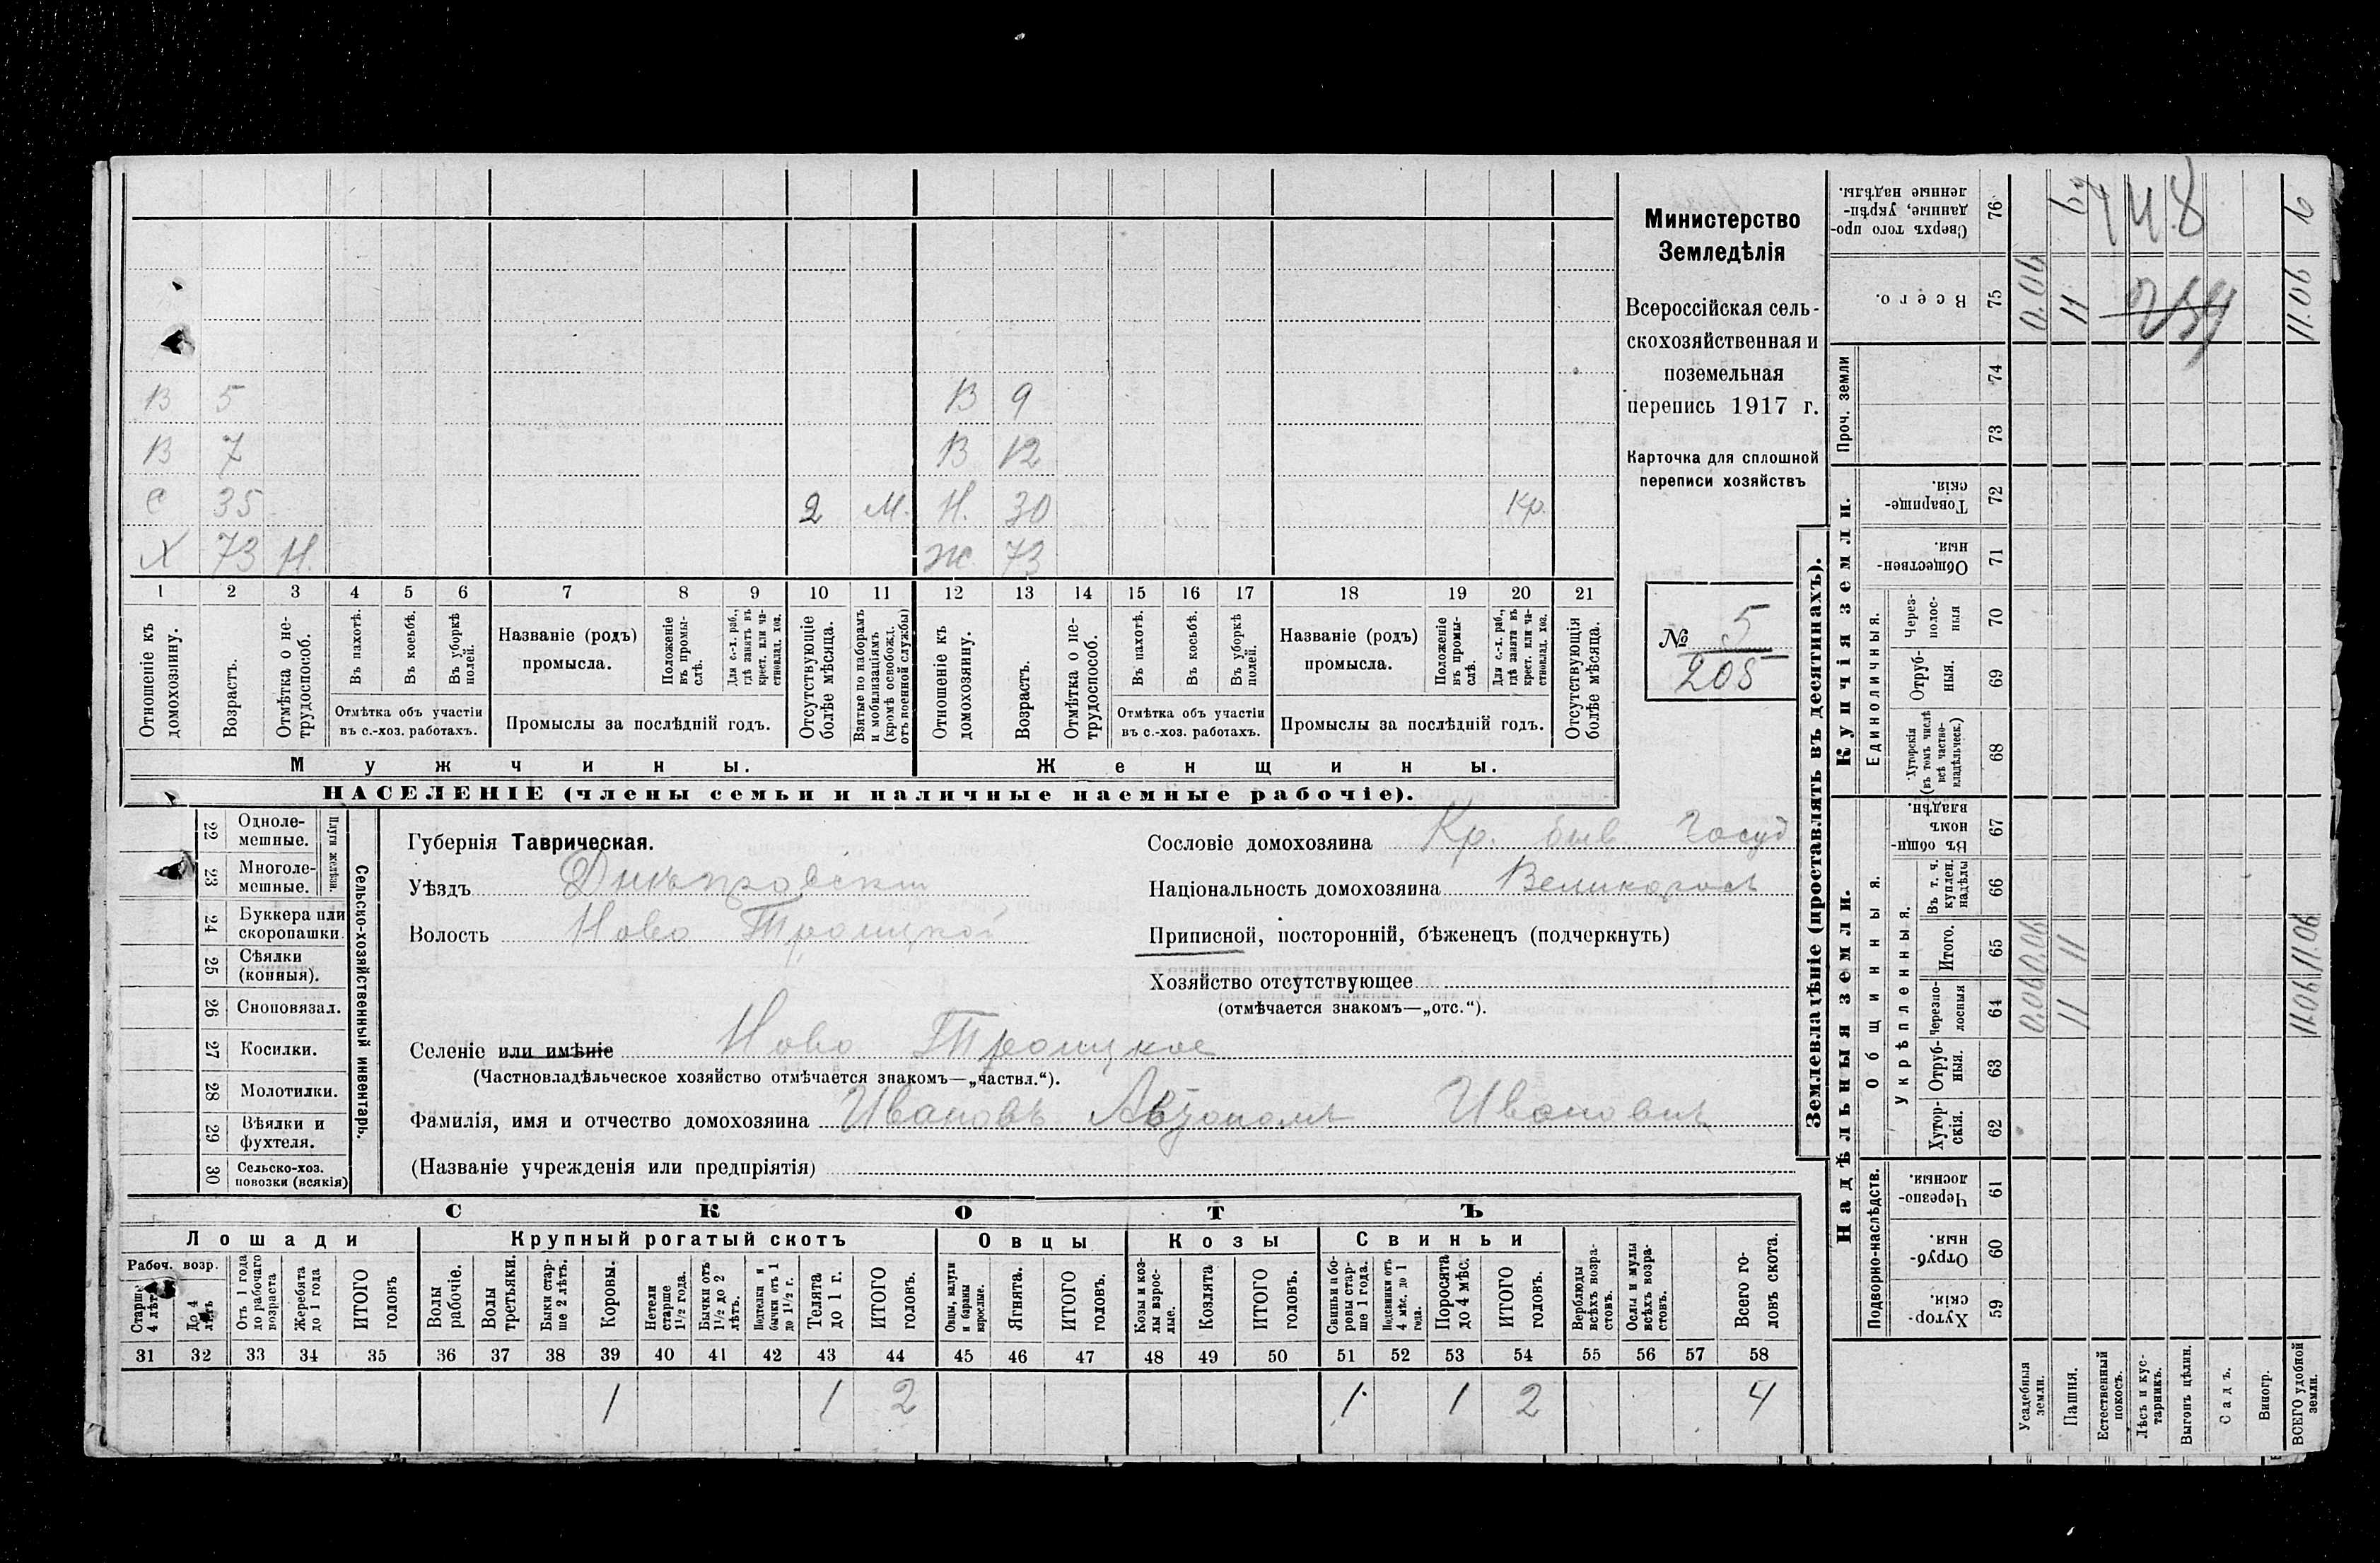 В 5 В 9
В 7 В 12
С 35 2 М. Н. 30 Кр.
Х 73 Н. Ж 73
1 2 3 4 5 6 7 8 9 10 11 12 13 14 15 16 17 18 19 20 21
Отношеніе къ домохозяину.
Возрастъ.
Отмѣтка о не-трудоспособ.
Въ пахотѣ.
Въ косьбѣ.
Въ уборкѣ полей.
Отмѣтка объ участіи въ с.-хоз. работахъ.
Названіе (родъ) промысла.
Положеніе въ промы-слѣ.
Для с.-х. раб., гдѣ занятъ въ крест. или ча-стновлад. хоз.
Промыслы за послѣдній годъ.
Отсутствующіе болѣе мѣсяца.
Взятые по наборамъ и мобилизаціямъ (кромѣ освобожд. отъ военной службы)
Отношеніе къ домохозяину.
Возрастъ.
Отмѣтка о не-трудоспособ.
Въ пахотѣ.
Въ косьбѣ.
Въ уборкѣ полей.
Отмѣтка объ участіи въ с.-хоз. работахъ.
Названіе (родъ) промысла.
Положеніе въ промы-слѣ.
Для с.-х. раб., гдѣ занята въ крест. или ча-стновлад. хоз.
Промыслы за послѣдній годъ.
Отсутствующія болѣе мѣсяца.
Мужчины. Женщины.
НАСЕЛЕНІЕ (члены семьи и наличные наемные рабочіе).
Министерство
Земледѣлія
Всероссійская сель-
скохозяйственная и
поземельная
перепись 1917 г.
Карточка для сплошной
переписи хозяйствъ
№ 5
205
22 Одноле-мешные.
23 Многоле-мешные.
Плуги желѣзн.
24 Буккера или скоропашки.
25 Сѣялки (конныя).
26 Сноповязал.
27 Косилки.
28 Молотилки.
29 Вѣялки и фухтеля.
30 Сельско-хоз. повозки (всякія)
Сельско-хозяйственный инвентарь.
Губернія Таврическая.
Уѣздъ Днѣпровскій
Волость Ново Троицкой
Селеніе или имѣніе Ново Троицкое
(Частновладѣльческое хозяйство отмѣчается знакомъ—„частвл.“).
Фамилія, имя и отчество домохозяина Ивановъ Автономъ Ивановичъ
(Названіе учрежденія или предпріятія)
Сословіе домохозяина Кр. быв. Госуд
Національность домохозяина Великоросъ
Приписной, посторонній, бѣженецъ (подчеркнуть)
Хозяйство отсутствующее
(отмѣчается знакомъ—„отс.“).
СКОТЪ
Лошади Крупный рогатый скотъ Овцы Козы Свиньи
Рабоч. возр.
Старше 4 лѣтъ
До 4 лѣтъ
Отъ 1 года до рабочаго возраста
Жеребята до 1 года
ИТОГО головъ
Волы рабочіе.
Волы третьяки.
Быки стар-ше 2 лѣтъ.
Коровы.
Нетели старше 1½ года.
Бычки отъ 1½ до 2 лѣтъ.
Подтелки и бычки отъ 1 до 1½ г.
Телята до 1 г.
ИТОГО головъ.
Овцы, валухи и бараны взрослые.
Ягнята.
ИТОГО головъ.
Козы и коз-лы взрос-лые.
Козлята
ИТОГО головъ.
Свиньи и бо-ровы стар-ше 1 года.
Подсвинки отъ 4 мѣс. до 1 года.
Поросята до 4 мѣс.
ИТОГО головъ.
Верблюды всѣхъ возра-стовъ.
Ослы и мулы всѣхъ возра-стовъ.
Всего го-ловъ скота.
31 32 33 34 35 36 37 38 39 40 41 42 43 44 45 46 47 48 49 50 51 52 53 54 55 56 57 58
1 1 2 1 1 2 4
Землевладѣніе (проставлять въ десятинахъ).
Надѣльныя земли. Купчія земли. Проч. земли
Подворно-наслѣдств.
Общинныя.
Укрѣпленныя.
Единоличныя.
Сверхъ того про-данные, укрѣп-ленные надѣлы. 76
Всего. 75
74
73
Товарище-скія. 72
Обществен-ныя. 71
Через-полос-ныя 70
Отруб-ныя. 69
Хуторскія (въ томъ числѣ всѣ частно-владѣльческ.) 68
Въ общин-номъ владѣн. 67
Въ т. ч. куплен. надѣлы 66
Итого. 65
Черезпо-лосныя 64
Отруб-ныя. 63
Хутор-скія. 62
Черезпо-лосныя. 61
Отруб-ныя. 60
Хутор-скія. 59
Усадебныя земли. 0.06 0.06 0.06
Пашня. 11 11 11 6
Естественный покосъ.
Лѣсъ и кус-тарникъ.
Выгонъ цѣлин.
Садъ.
Виногр.
ВСЕГО удобной земли. 11.06 11.06 11.06 6
448